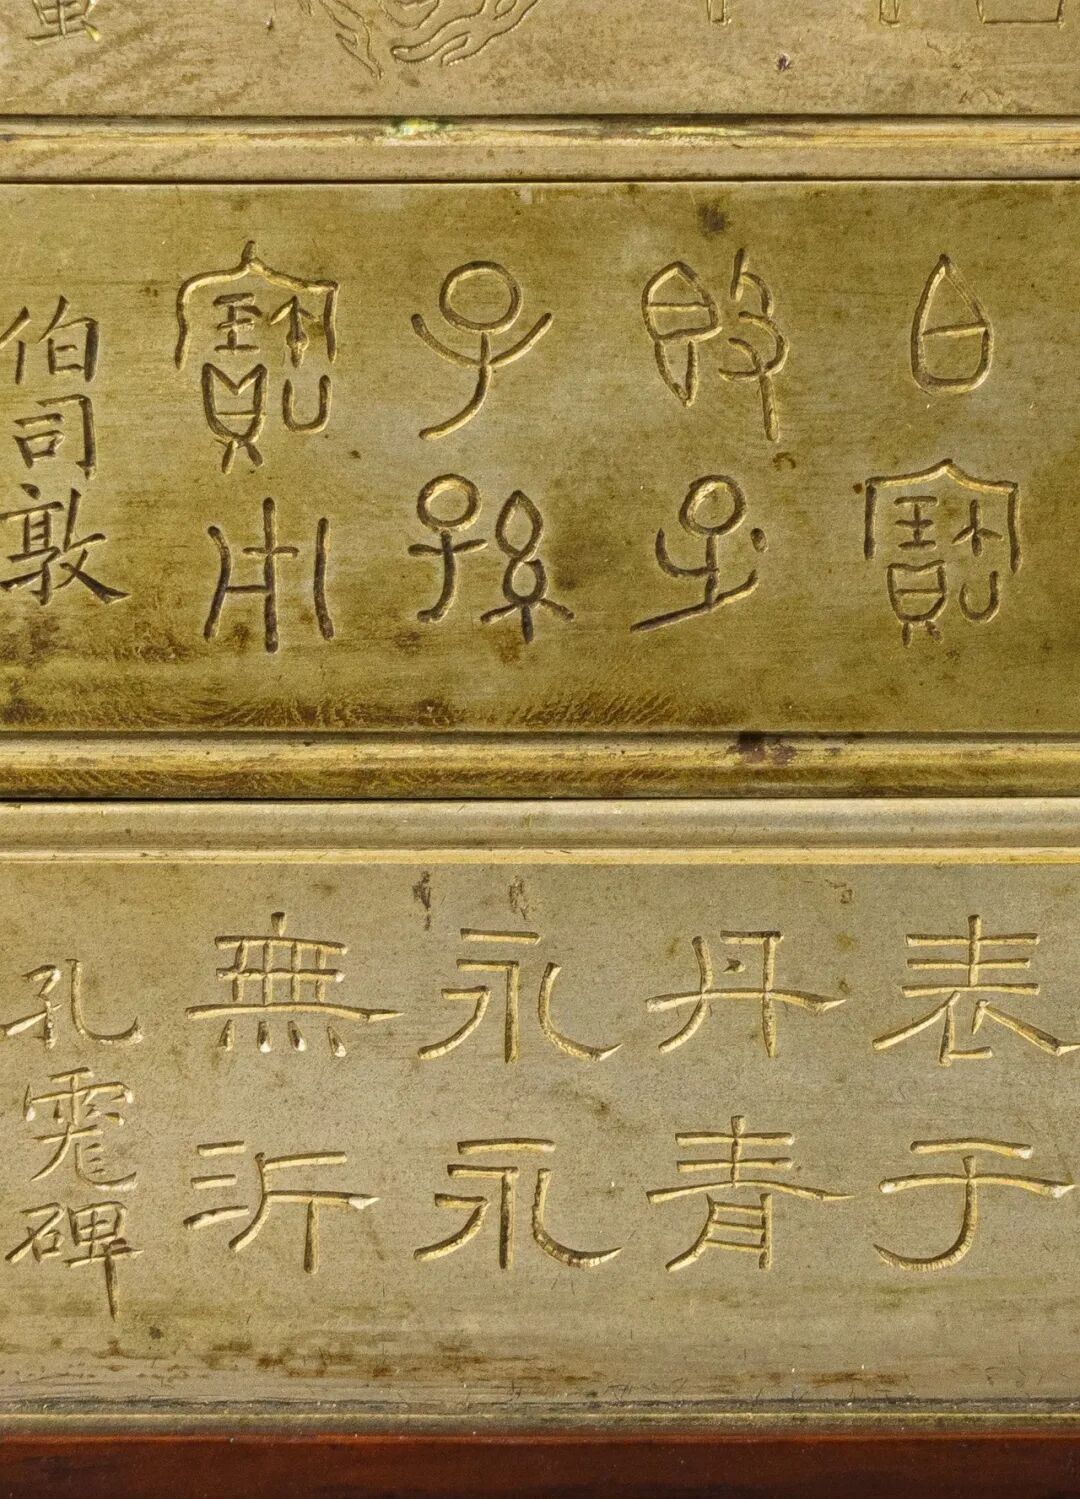 白寶
子孫
寶用
伯司敦
表于
丹青
永永
無沂
孔 碑